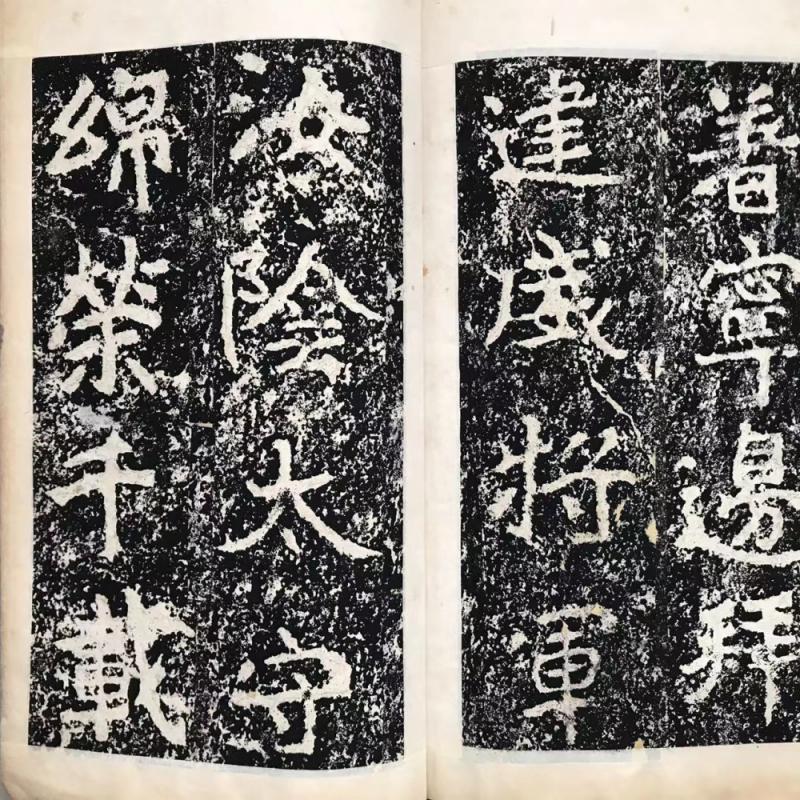 著寧邊拜
建威將軍
汝陰太守
綿榮千載